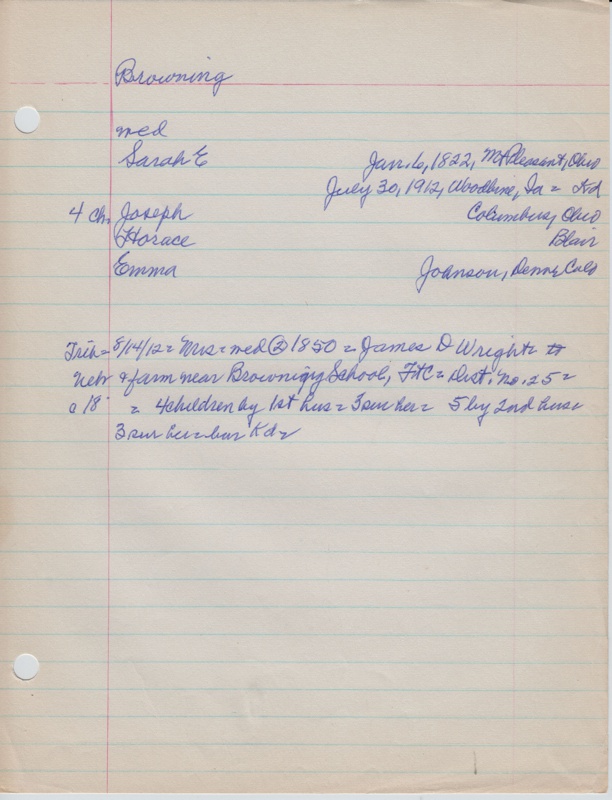 Browning
med
Sarah E Jan. 6, 1822, Mt Pleasant, Ohio
July 30, 1912, Woodbine, Ia = Kd
4 ch. Joseph Columbus, Ohio
Horace Blair
Emma Johnson, Denny Colo
Trib = 8/14/12 = Mrs = med ② 1850 = James D Wright = to
Nebr & farm near Browning School, FtC = Dist. No. 25 =
a 18 = 4 children by 1st hus = 3 sur her = 5 by 2nd hus =
3 sur her = bur Kd =